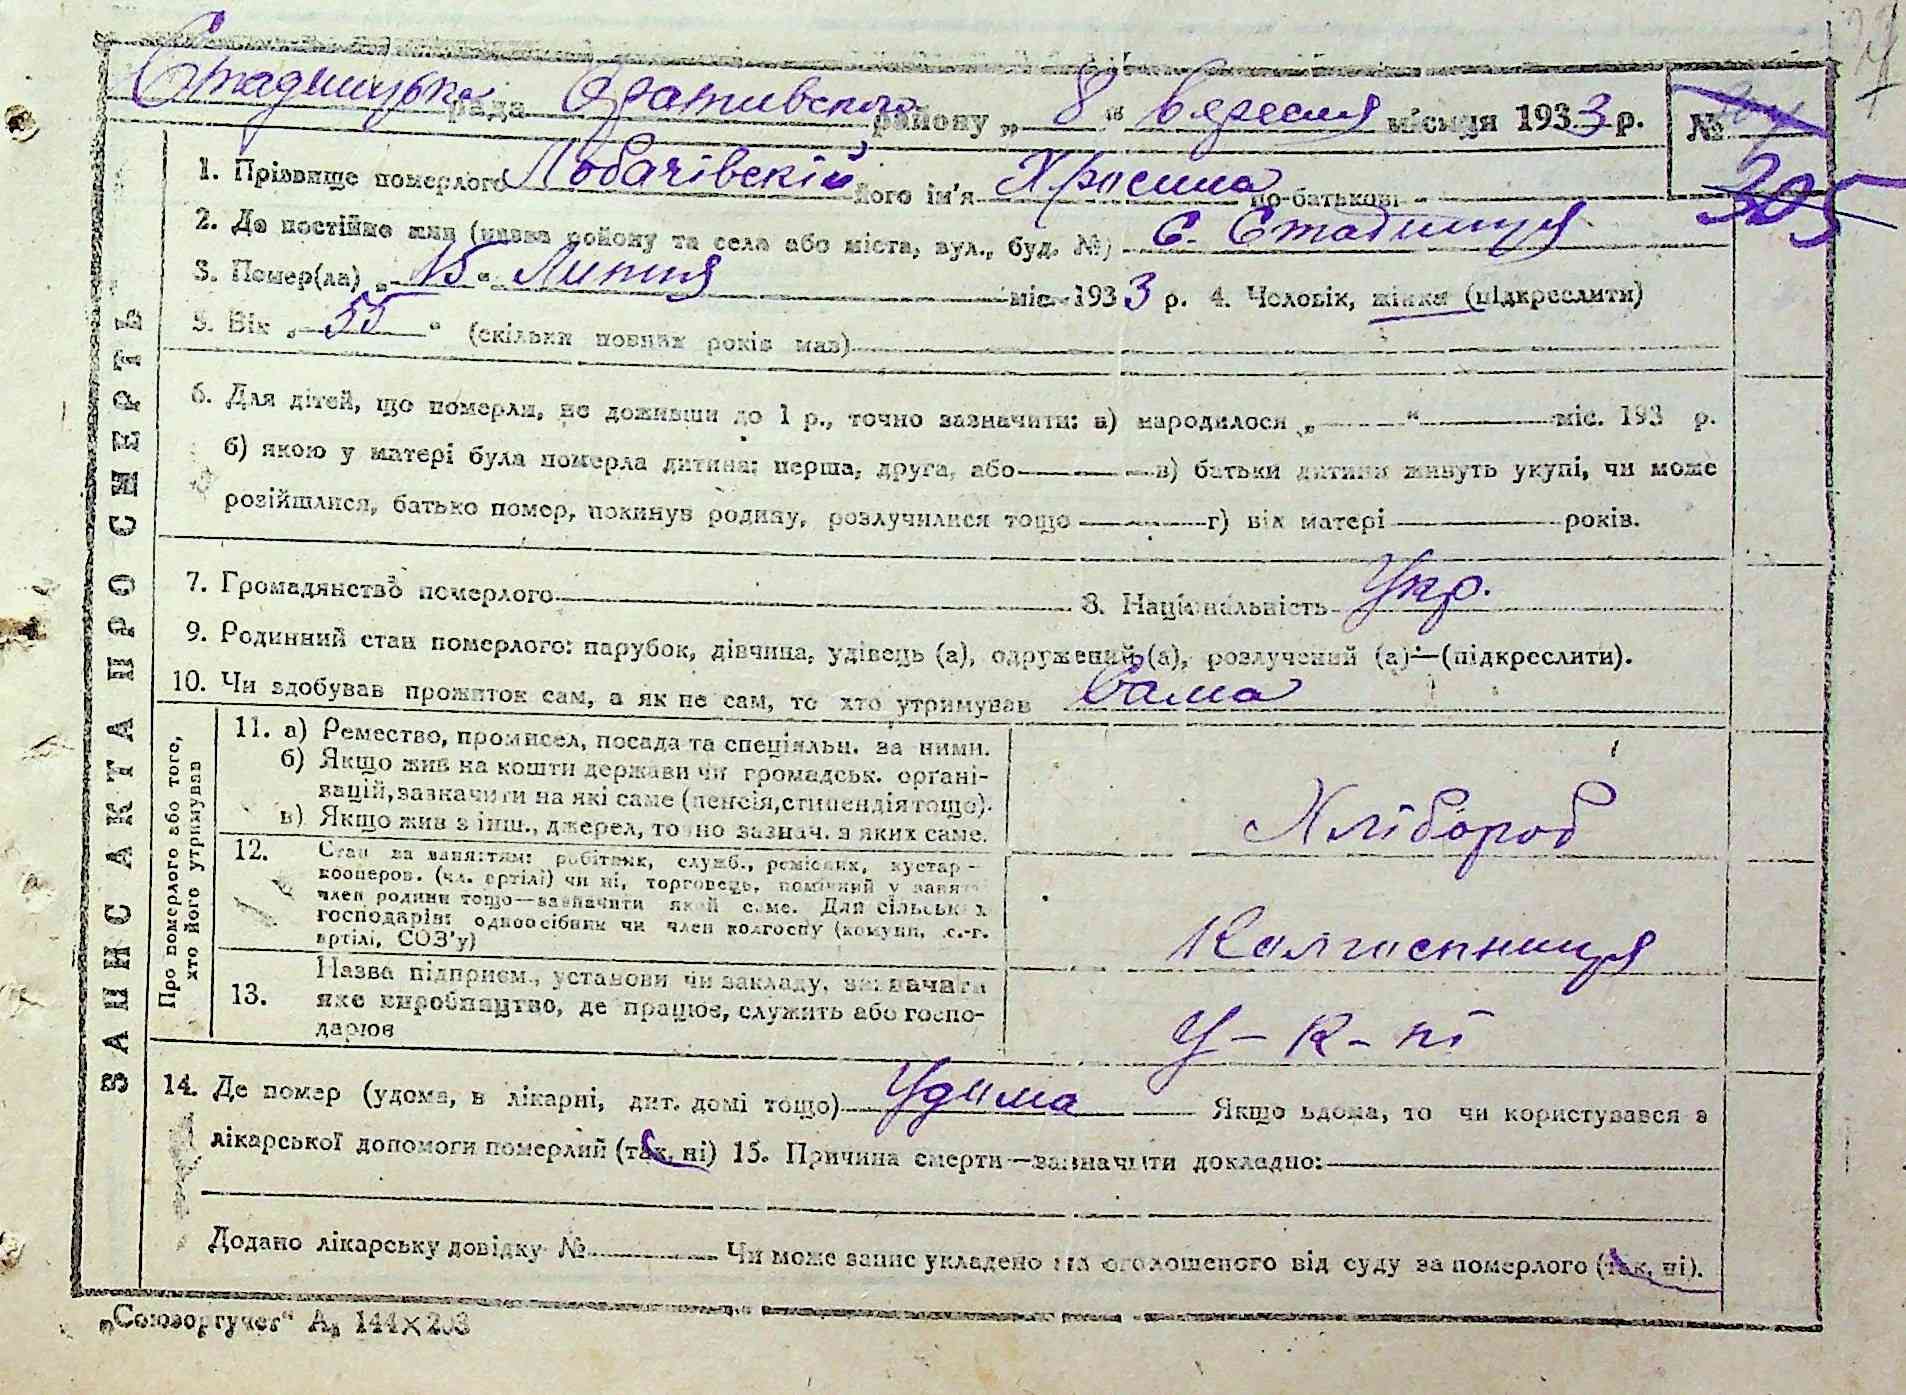 Стадницька рада Оративського району „8" вересня місяця 1933 р. №
305
1. Прізвище померлого Лобачівскій його ім'я Хрисина по-батькові
2. Де постійно жив (назва району та села або міста, вул., буд. №) С. Стадниця
3. Помер(ла) „15" Липня міс. 1933 р. 4. Чоловік, жінка (підкреслити)
5. Вік „55" (скільки повних років мав)
6. Для дітей, що померли, не доживши до 1 р., точно зазначити: а) народилося „ " міс. 193 р.
б) якою у матері була померла дитина: перша, друга, або в) батьки дитини живуть укупі, чи може
розійшлися, батько помер, покинув родину, розлучилися тощо г) вік матері років.
7. Громадянство померлого 8. Національність Укр.
9. Родинний стан померлого: парубок, дівчина, удівець (а), одружений (а), розлучений (а)—(підкреслити).
10. Чи здобував прожиток сам, а як не сам, то хто утримував Сама
ЗАПИС АКТА ПРО СМЕРТЬ
Про померлого або того, хто його утримував
11. а) Ремество, промисел, посада та спеціяльн. за ними.
б) Якщо жив на кошти держави чи громадськ. органі-
зацій, зазначити на які саме (пенсія, стипендія тощо).
в) Якщо жив з інш., джерел, точно зазнач. з яких саме.
Хлібороб
12. Стан за заняттям: робітник, служб., ремісник, кустар-
кооперов. (чл. артілі) чи ні, торговець, помічний у занят.
член родини тощо—зазначити який саме. Для сільських
господарів: одноосібник чи член колгоспу (комуни, с.-г.
артілі, СОЗ'у)
Колгоспниця
13. Назва підприєм., установи чи закладу, зазначити
яке виробництво, де працює, служить або госпо-
дарює
У-К-пі
14. Де помер (удома, в лікарні, дит. домі тощо) Удома Якщо вдома, то чи користувався з
лікарської допомоги померлий (так, ні) 15. Причина смерти—зазначити докладно:
Додано лікарську довідку № Чи може запис укладено на оголошеного від суду за померлого (так, ні).
„Союзоргучет" А₅ 144×203